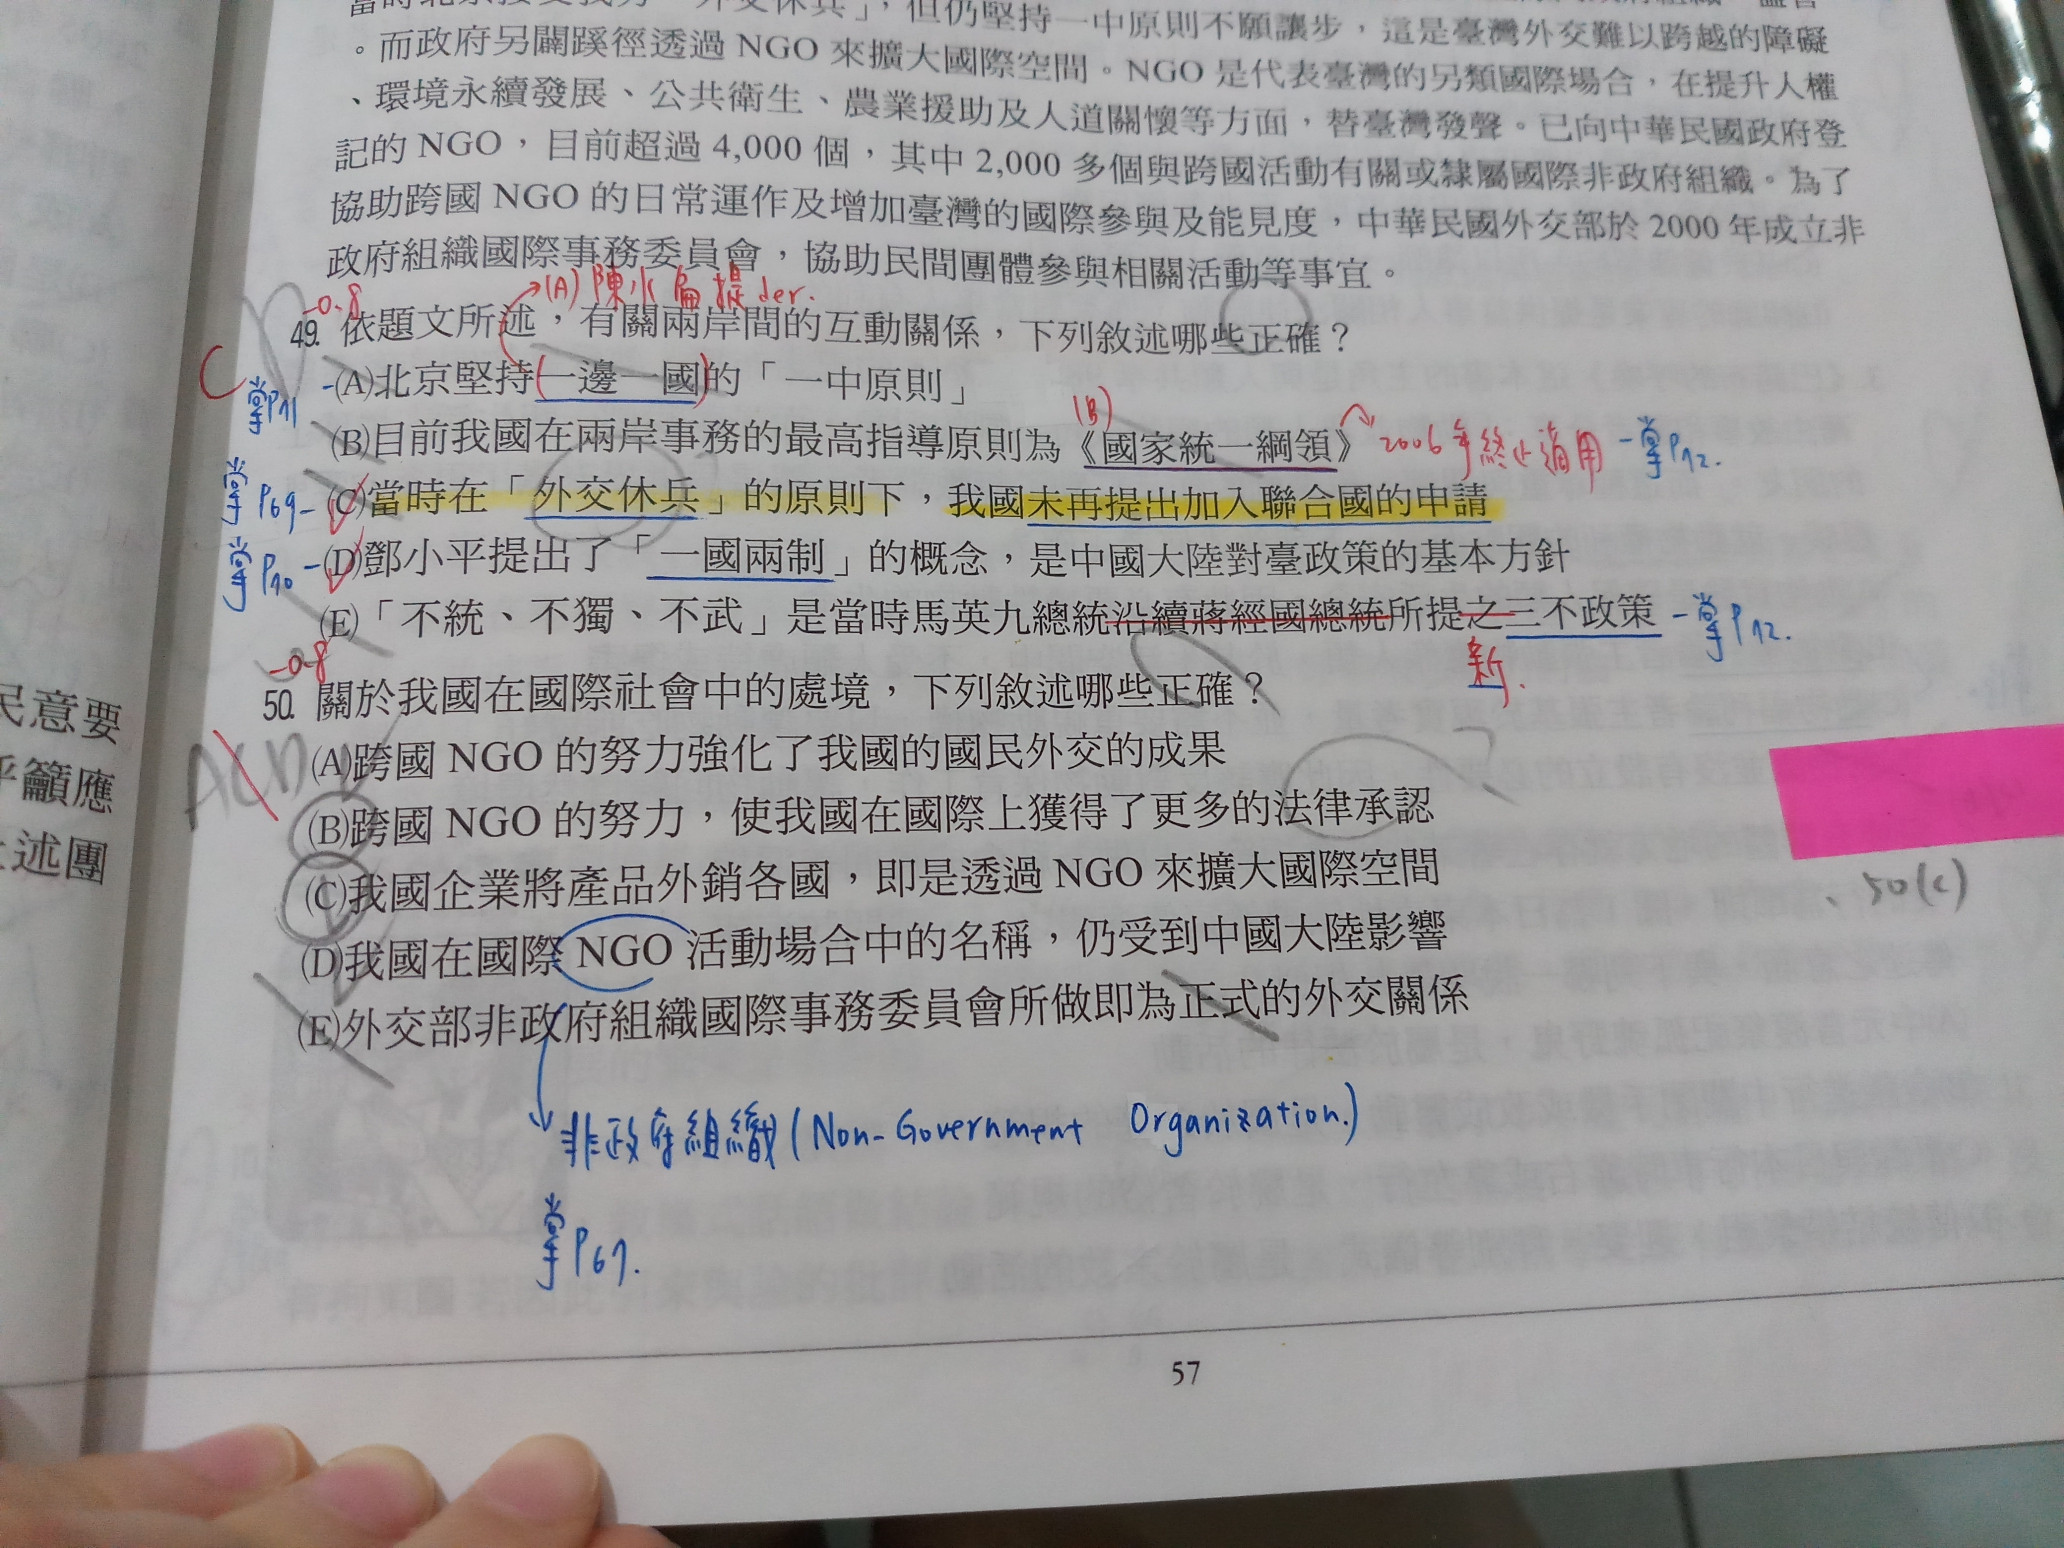 。而政府另闢蹊徑透過 NGO 來擴大國際空間。NGO 是代表臺灣的另類國際場合，在提升人權
、環境永續發展、公共衛生、農業援助及人道關懷等方面，替臺灣發聲。已向中華民國政府登
記的 NGO，目前超過 4,000 個，其中 2,000 多個與跨國活動有關或隸屬國際非政府組織。為了
協助跨國 NGO 的日常運作及增加臺灣的國際參與及能見度，中華民國外交部於 2000 年成立非
政府組織國際事務委員會，協助民間團體參與相關活動等事宜。
(A)陳水扁提der.
-0.8
49. 依題文所述，有關兩岸間的互動關係，下列敘述哪些正確？
掌P71 -(A)北京堅持(一邊一國)的「一中原則」
(B)
(B)目前我國在兩岸事務的最高指導原則為《國家統一綱領》 2006年終止適用 -掌P72.
掌P69- (C)當時在「外交休兵」的原則下，我國未再提出加入聯合國的申請
掌P70 -(D)鄧小平提出了「一國兩制」的概念，是中國大陸對臺政策的基本方針
(E)「不統、不獨、不武」是當時馬英九總統沿續蔣經國總統所提之三不政策 -掌P72.
新.
-0.8
50. 關於我國在國際社會中的處境，下列敘述哪些正確？
ACD
(A)跨國 NGO 的努力強化了我國的國民外交的成果
(B)跨國 NGO 的努力，使我國在國際上獲得了更多的法律承認
(C)我國企業將產品外銷各國，即是透過 NGO 來擴大國際空間
50(C)
(D)我國在國際 NGO 活動場合中的名稱，仍受到中國大陸影響
(E)外交部非政府組織國際事務委員會所做即為正式的外交關係
非政府組織(Non-Government Organization.)
掌P67.
57
民意要
呼籲應
述團